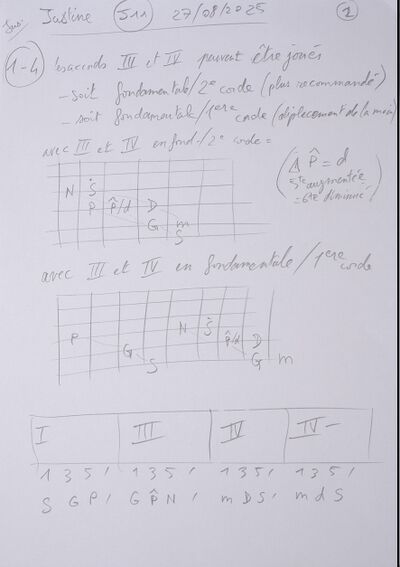 Justine S11 27/08/2025 2
1-4 les accords III et IV peuvent être joués
- soit fondamentale/2e corde (plus recommandé)
- soit fondamentale/1ere corde (déplacement de la main)
avec III et IV en fond-/2e corde =
(Δ P̂ = d
5te augmentée
= 6te diminuée)
N Ṡ
P P̂/d D
G m
S
avec III et IV en fondamentale/1ere corde
P N Ṡ
G P̂/d D
S G m
I III IV IV-
1 3 5 / 1 3 5 / 1 3 5 / 1 3 5
S G P / G P̂ N / m D S / m d S